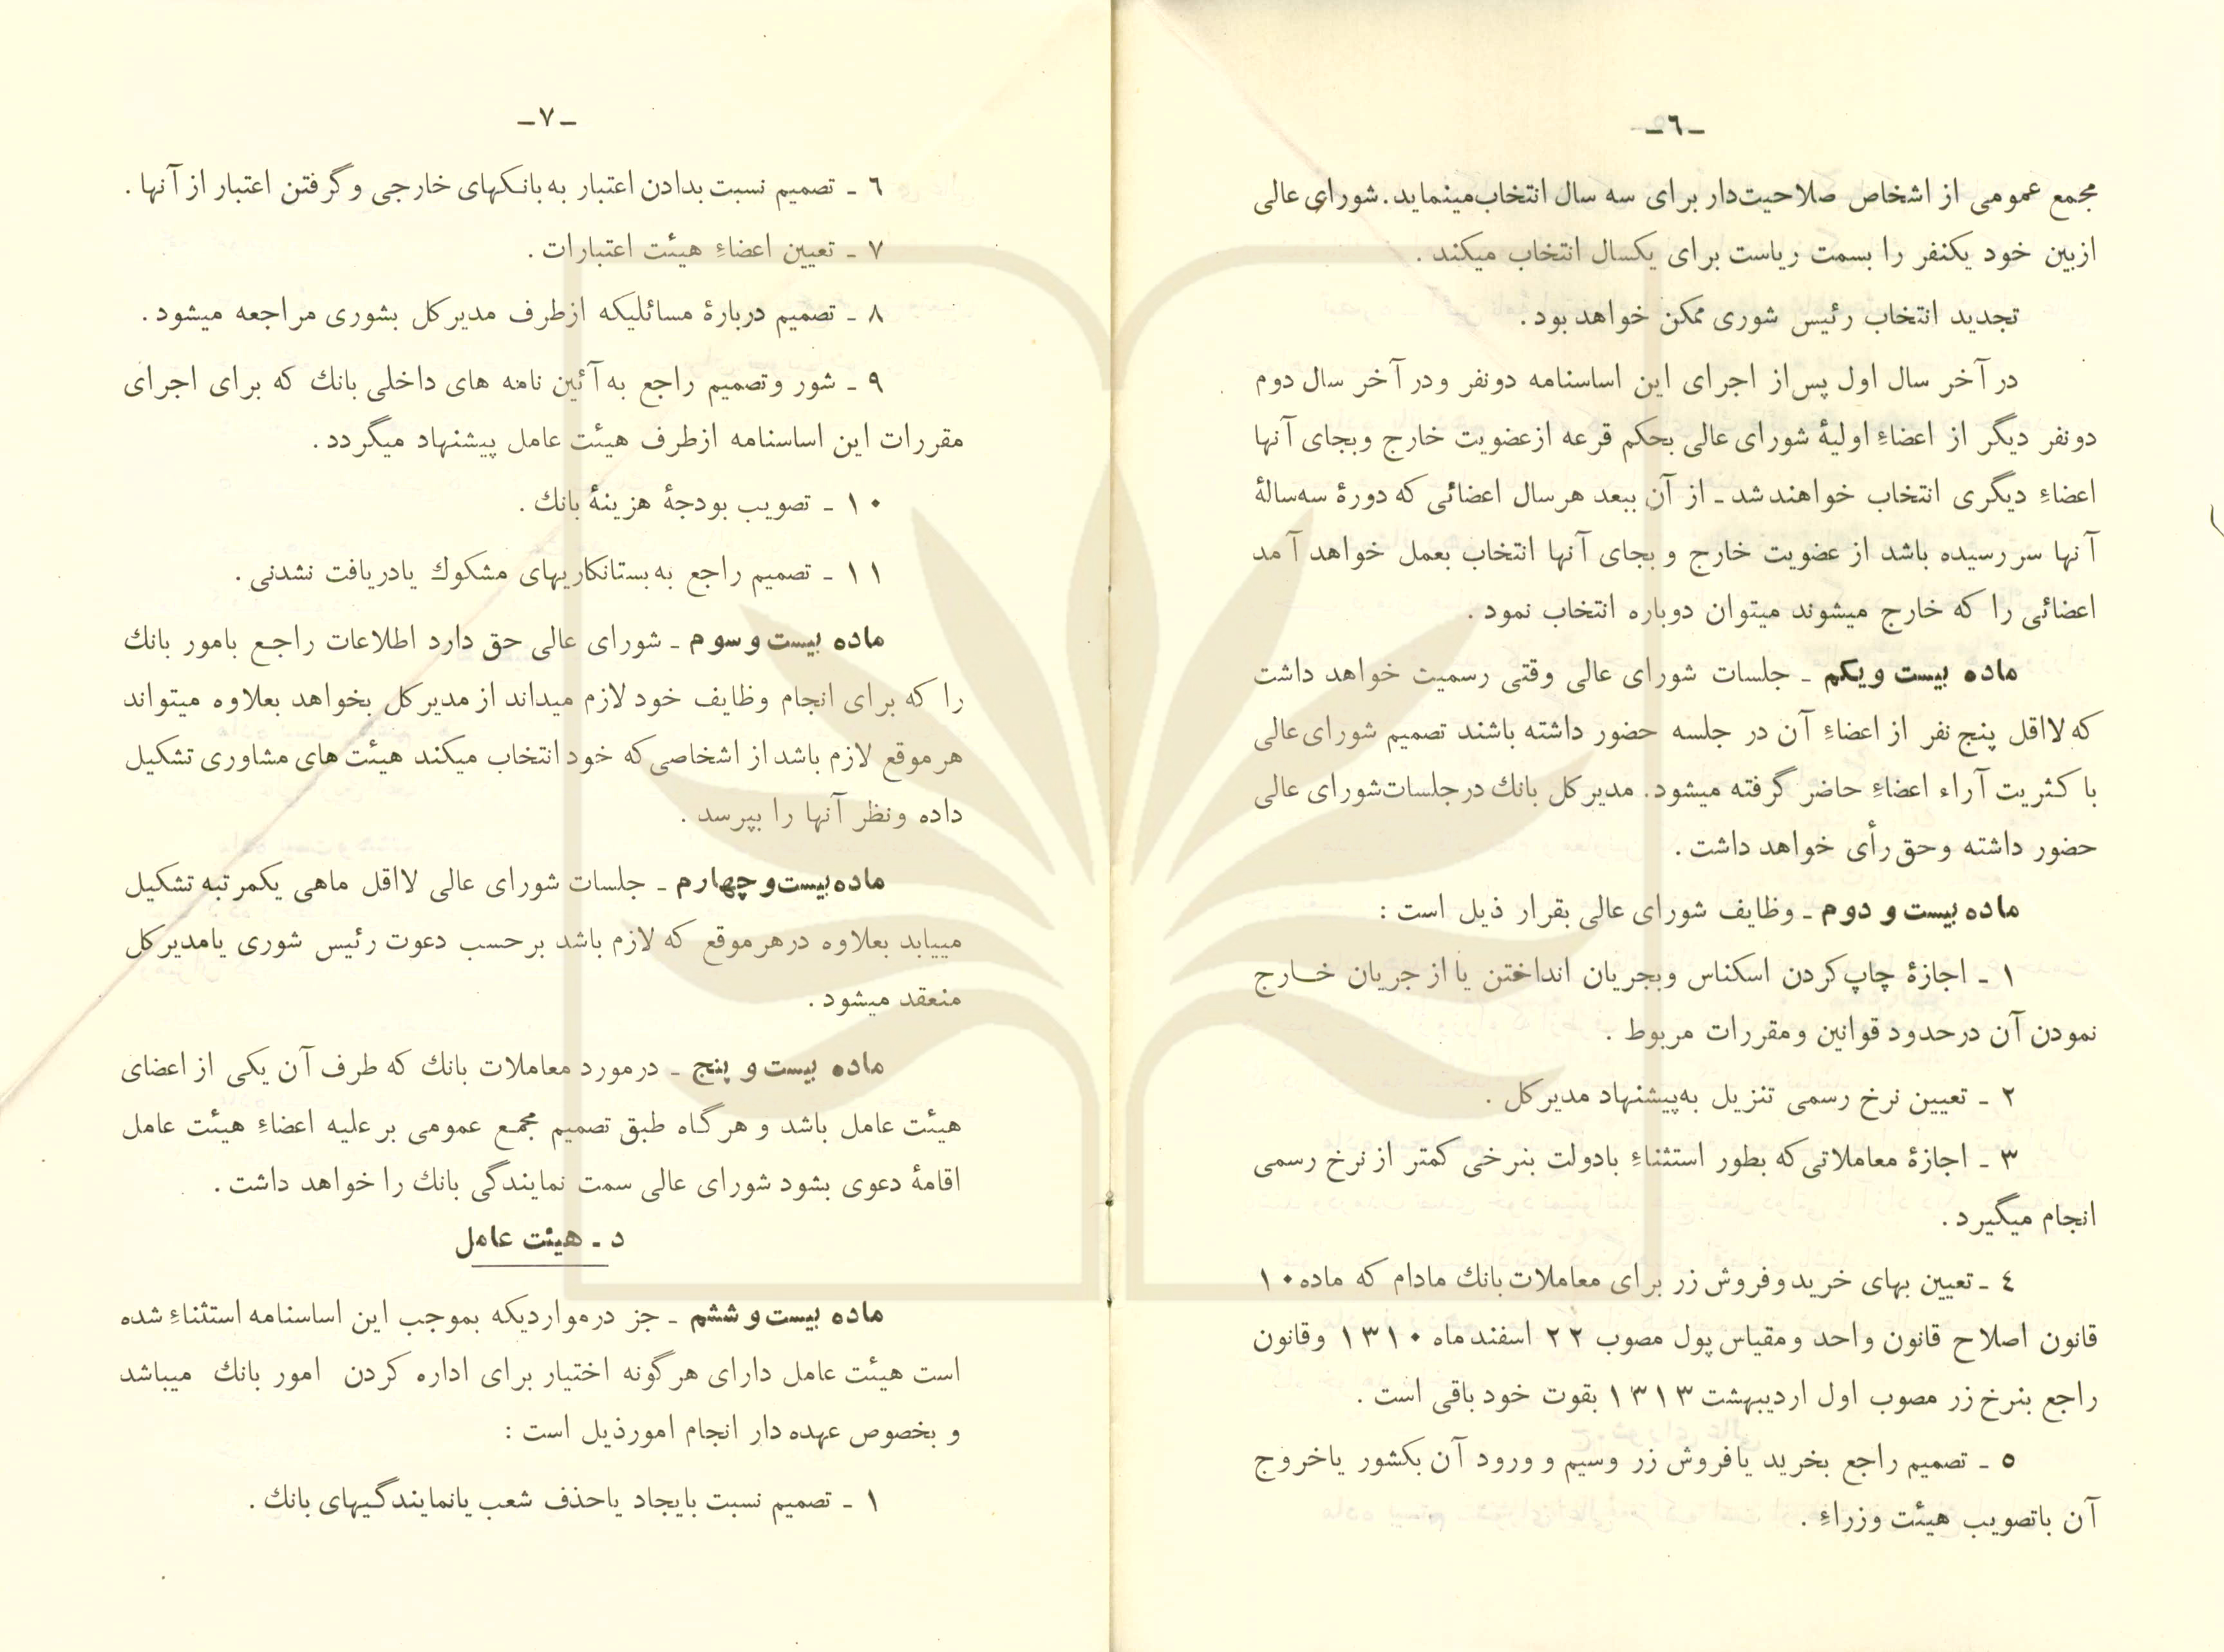 ـ٦ـ
مجمع عمومی از اشخاص صلاحیت‌دار برای سه سال انتخاب‌مینماید. شورای عالی
ازبین خود یکنفر را بسمت ریاست برای یکسال انتخاب میکند .
تجدید انتخاب رئیس شوری ممکن خواهد بود .
در آخر سال اول پس‌از اجرای این اساسنامه دونفر ودر آخر سال دوم
دونفر دیگر از اعضاءِ اولیهٔ شورای عالی بحکم قرعه ازعضویت خارج وبجای آنها
اعضاءِ دیگری انتخاب خواهند شد ـ از آن ببعد هرسال اعضائی که دورهٔ سه‌سالهٔ
آنها سر رسیده باشد از عضویت خارج و بجای آنها انتخاب بعمل خواهد آمد
اعضائی را که خارج میشوند میتوان دوباره انتخاب نمود .
ماده بیست ویکم ـ جلسات شورای عالی وقتی رسمیت خواهد داشت
که لااقل پنج نفر از اعضاءِ آن در جلسه حضور داشته باشند تصمیم شورای عالی
با کثریت آراء اعضاءِ حاضر گرفته میشود. مدیر کل بانك درجلسات‌شورای عالی
حضور داشته وحق رأی خواهد داشت .
ماده بیست و دوم ـ وظایف شورای عالی بقرار ذیل است :
١ ـ اجازهٔ چاپ کردن اسکناس وبجریان انداختن یا از جریان خــارج
نمودن آن درحدود قوانین ومقررات مربوط .
٢ ـ تعیین نرخ رسمی تنزیل به‌پیشنهاد مدیر کل .
٣ ـ اجازهٔ معاملاتی که بطور استثناءِ بادولت بنرخی کمتر از نرخ رسمی
انجام میگیرد .
٤ ـ تعیین بهای خرید وفروش زر برای معاملات بانك مادام که ماده ١٠
قانون اصلاح قانون واحد ومقیاس پول مصوب ٢٢ اسفند ماه ١٣١٠ وقانون
راجع بنرخ زر مصوب اول اردیبهشت ١٣١٣ بقوت خود باقی است .
٥ ـ تصمیم راجع بخرید یافروش زر وسیم و ورود آن بکشور یاخروج
آن باتصویب هیئت وزراءِ .
ـ٧ـ
٦ ـ تصمیم نسبت بدادن اعتبار به بانکهای خارجی وگرفتن اعتبار از آنها .
٧ ـ تعیین اعضاءِ هیئت اعتبارات .
٨ ـ تصمیم دربارهٔ مسائلیکه ازطرف مدیر کل بشوری مراجعه میشود .
٩ ـ شور وتصمیم راجع به آئین نامه های داخلی بانك که برای اجرای
مقررات این اساسنامه ازطرف هیئت عامل پیشنهاد میگردد .
١٠ ـ تصویب بودجهٔ هزینهٔ بانك .
١١ ـ تصمیم راجع به بستانکاریهای مشکوك یادریافت نشدنی .
ماده بیست و سوم ـ شورای عالی حق دارد اطلاعات راجع بامور بانك
را که برای انجام وظایف خود لازم میداند از مدیر کل بخواهد بعلاوه میتواند
هرموقع لازم باشد از اشخاصی که خود انتخاب میکند هیئت های مشاوری تشکیل
داده ونظر آنها را بپرسد .
ماده بیست‌و چهارم ـ جلسات شورای عالی لااقل ماهی یکمرتبه تشکیل
مییابد بعلاوه درهرموقع که لازم باشد برحسب دعوت رئیس شوری یامدیر کل
منعقد میشود .
ماده بیست و پنج ـ درمورد معاملات بانك که طرف آن یکی از اعضای
هیئت عامل باشد و هرگاه طبق تصمیم مجمع عمومی بر علیه اعضاءِ هیئت عامل
اقامهٔ دعوی بشود شورای عالی سمت نمایندگی بانك را خواهد داشت .
د ـ هیئت عامل
ماده بیست و ششم ـ جز درمواردیکه بموجب این اساسنامه استثناءِ شده
است هیئت عامل دارای هرگونه اختیار برای اداره کردن امور بانك میباشد
و بخصوص عهده دار انجام امورذیل است :
١ ـ تصمیم نسبت بایجاد یاحذف شعب یانمایندگیهای بانك .